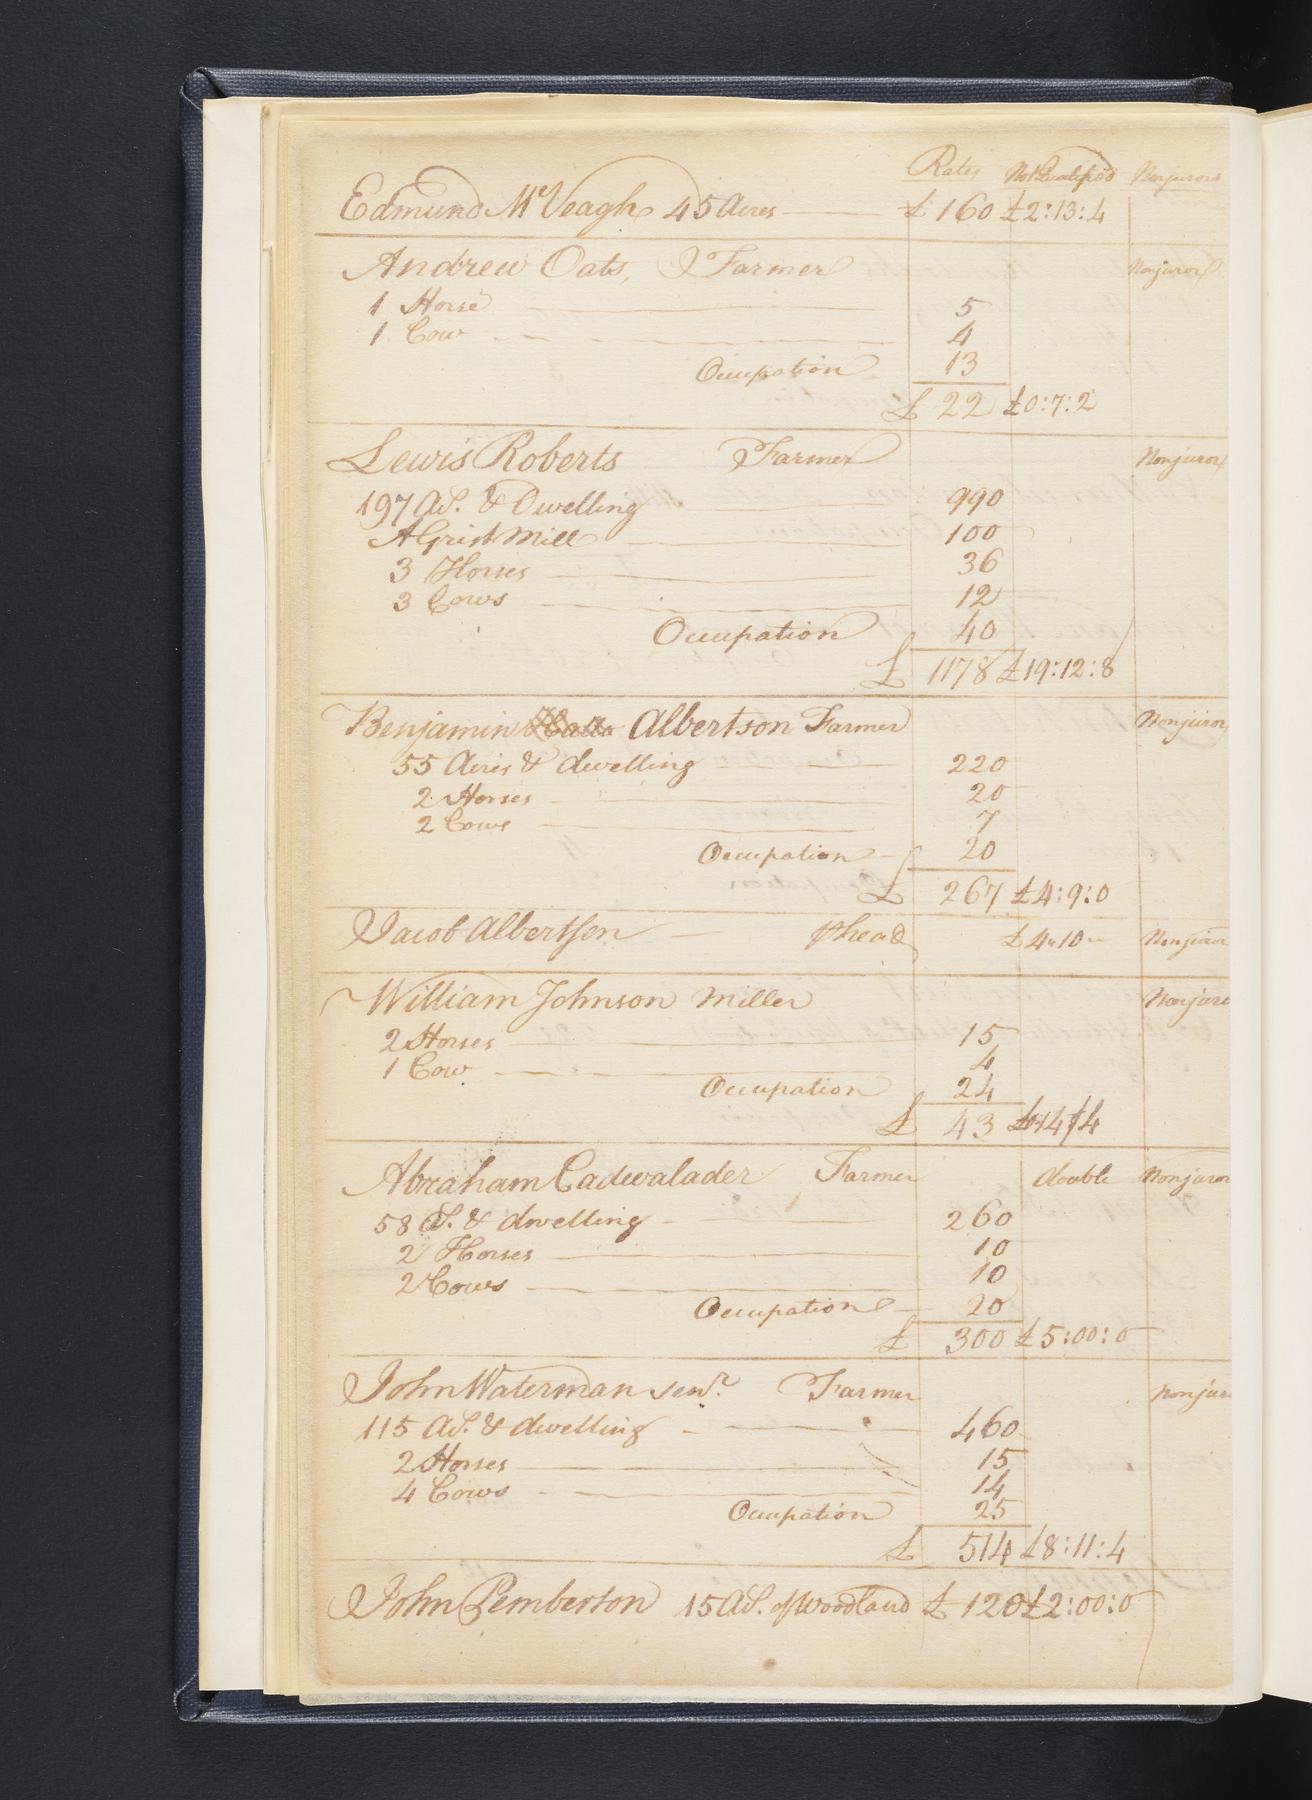 Rates Not Qualified Nonjurors
Edmund McVeagh 45 Acres £ 160 £2:13:4
Andrew Oats, Farmer Nonjuror
1 Horse 5
1 Cow 4
Occupation 13
£ 22 £0:7:2
Lewis Roberts Farmer Nonjuror
197 As. & Dwelling 990
A Grist Mill 100
3 Horses 36
3 Cows 12
Occupation 40
£ 1178 £19:12:8
Benjamin Albertson Farmer Nonjuror
55 Acres & dwelling 220
2 Horses 20
2 Cows 7
Occupation 20
£ 267 £4:9:0
Jacob Albertson phead £4"10- Nonjuror
William Johnson Miller Nonjuro
2 Horses 15
1 Cow 4
Occupation 24
£ 43 14/4
Abraham Cadwalader Farmer double Nonjuror
58 As. & dwelling 260
2 Horses 10
2 Cows 10
Occupation 20
£ 300 £5:00:0
John Waterman senr. Farmer nonjur
115 As. & dwelling 460
2 Horses 15
4 Cows 14
Occupation 25
£ 514 £8:11:4
John Pemberton 15 As. of Woodland £ 120 £2:00:0